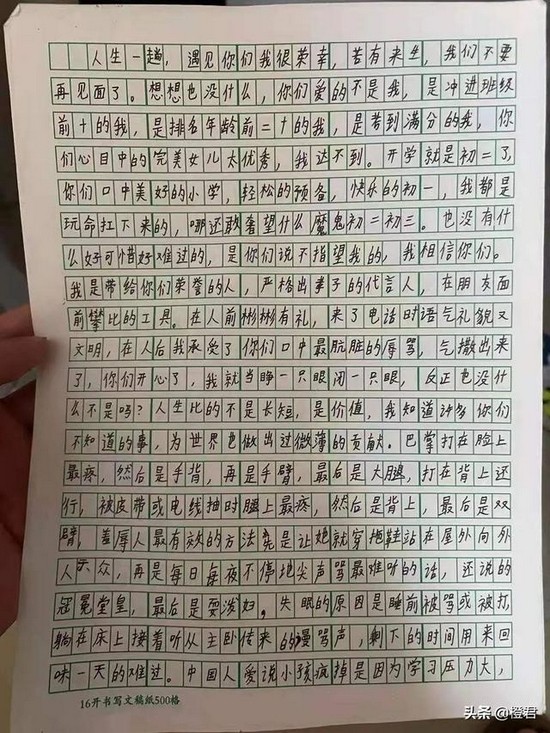 人生一趟，遇见你们我很荣幸，若有来生，我们不要
再见面了。想想也没什么，你们爱的不是我，是冲进班级
前十的我，是排名年龄前二十的我，是考到满分的我，你
们心目中的完美女儿太优秀，我达不到。开学就是初二了，
你们口中美好的小学，轻松的预备，快乐的初一，我都是
玩命扛下来的，哪还敢奢望什么魔鬼初二初三。也没有什
么好可惜好难过的，是你们说不指望我的，我相信你们。
我是带给你们荣誉的人，严格出事了的代言人，在朋友面
前攀比的工具。在人前彬彬有礼，来了电话时语气礼貌又
文明，在人后我承受了你们口中最肮脏的辱骂，气撒出来
了，你们开心了，我就当睁一只眼闭一只眼，反正也没什
么不是吗？人生比的不是长短，是价值，我知道许多你们
不知道的事，为世界也做出过微薄的贡献。巴掌打在脸上
最疼，然后是手背，再是手臂，最后是大腿，打在背上还
行，被皮带或电线抽时腿上最疼，然后是背上，最后是双
臂，羞辱人最有效的方法竟是让她就穿拖鞋站在屋外向外
人示众，再是每日每夜不停地尖声骂最难听的话，还说的
冠冕堂皇，最后是耍泼妇。失眠的原因是睡前被骂或被打，
躺在床上接着听从主卧传来的谩骂声，剩下的时间用来回
味一天的难过。中国人爱说小孩疯掉是因为学习压力大，
16开书写文稿纸500格
头条 @橙君